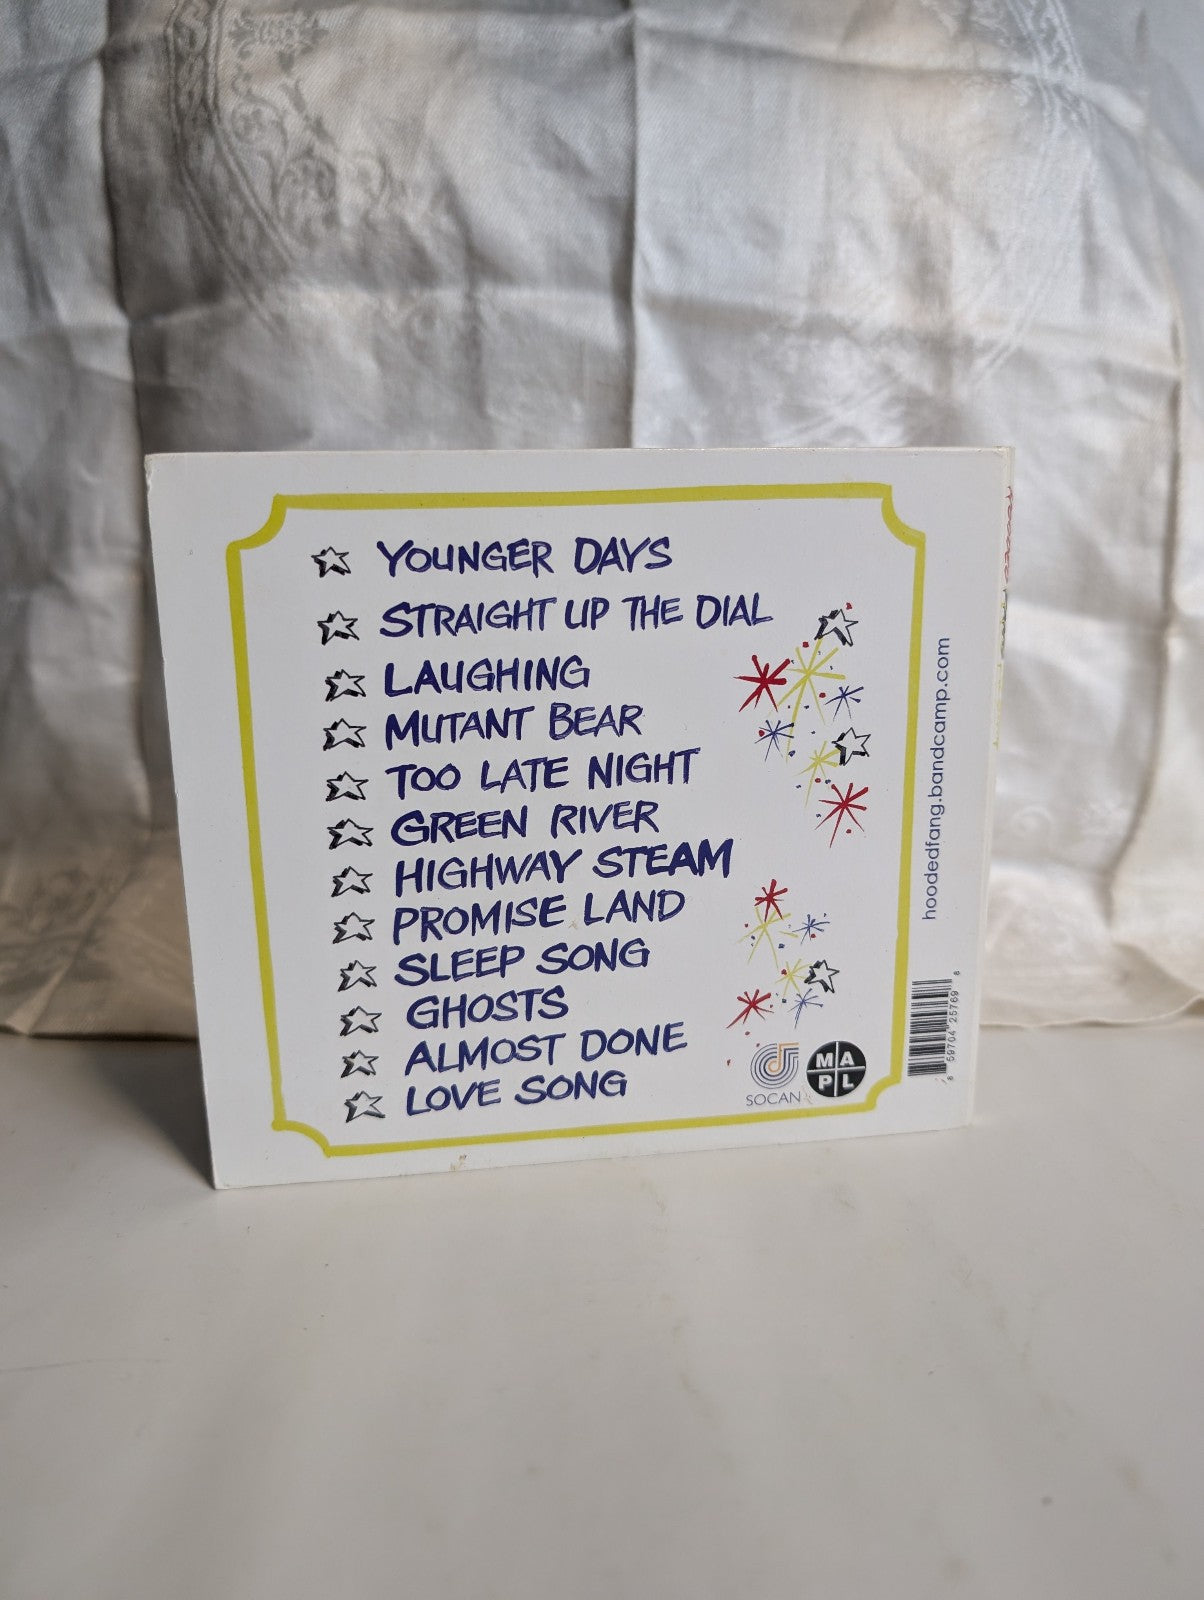 YOUNGER DAYS
STRAIGHT UP THE DIAL
LAUGHING
MUTANT BEAR
TOO LATE NIGHT
GREEN RIVER
HIGHWAY STEAM
PROMISE LAND
SLEEP SONG
GHOSTS
ALMOST DONE
LOVE SONG
SOCAN
MA
PL
hoodedfang.bandcamp.com
8 59704 25769 8